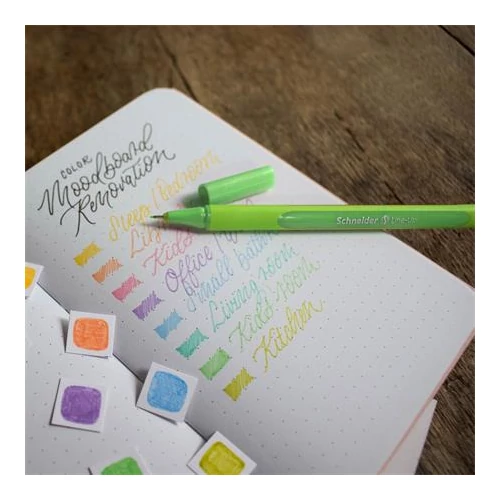 COLOR
Moodboard
Renovation
Sleep / Bedroom
Kids
Office /
Small bathroom
Living room
Kid's room
Kitchen
Schneider Line-Up